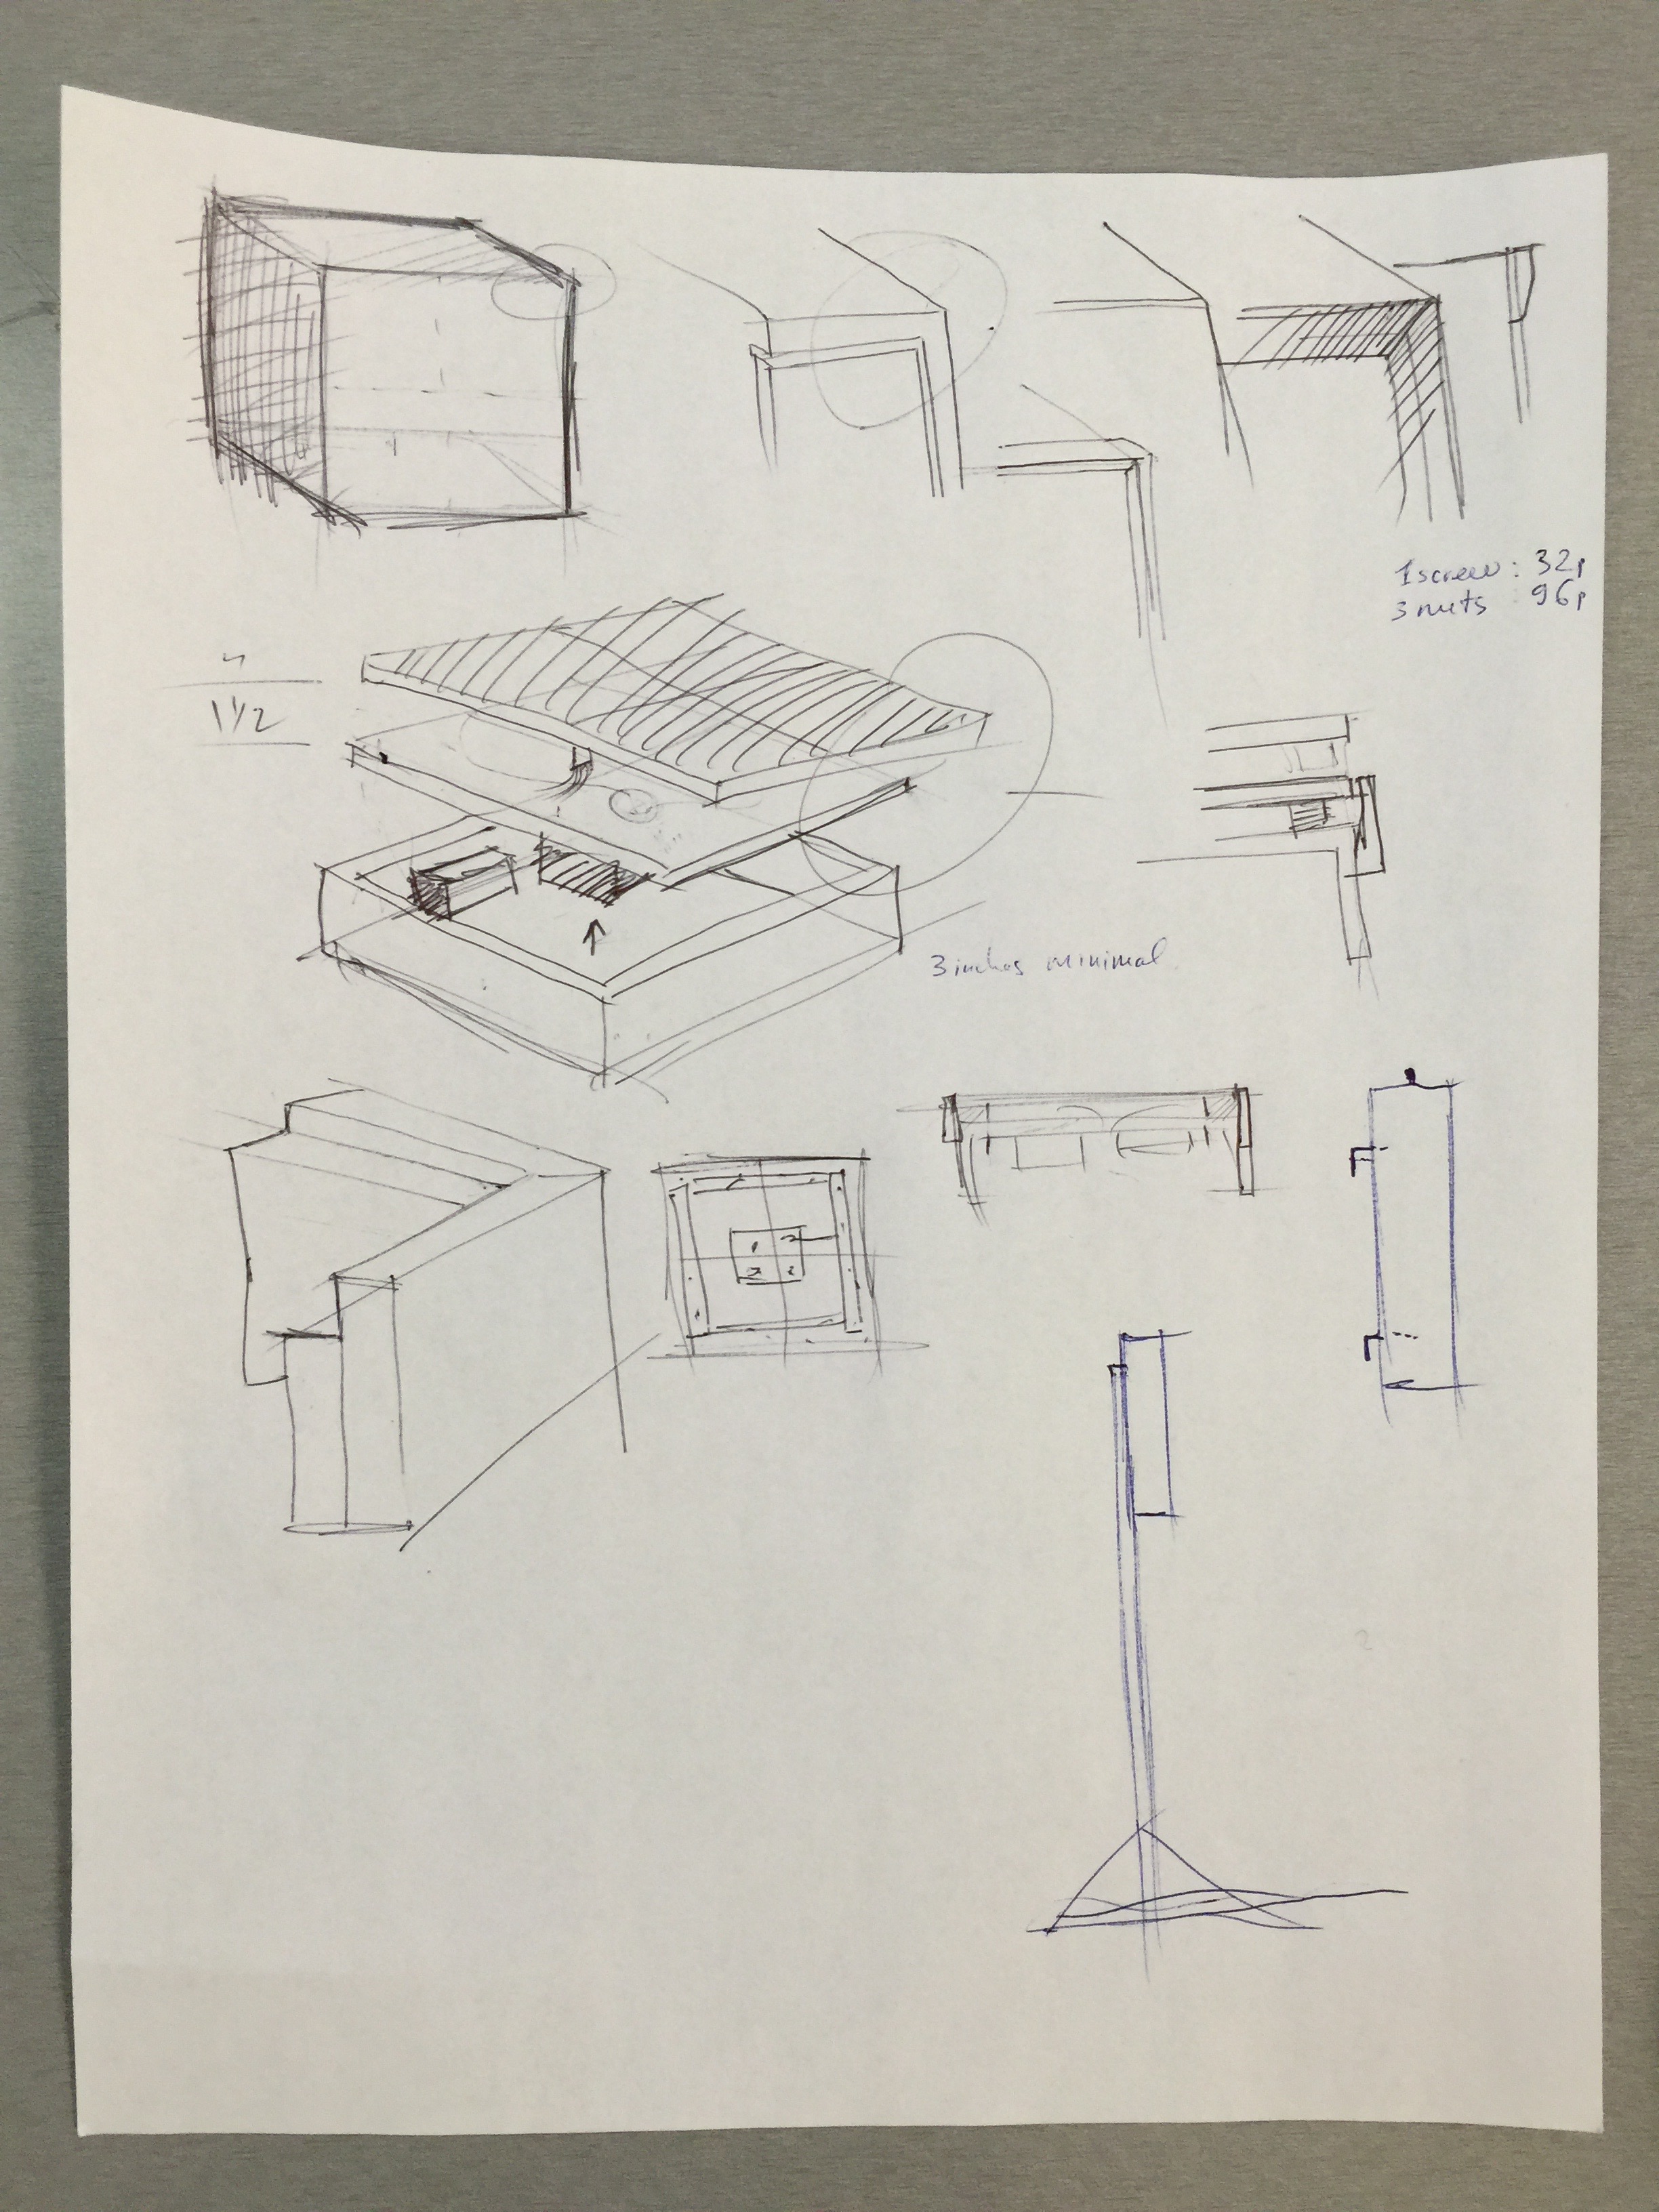 1 screw : 32p
3 nuts : 96p
1 1/2
3 inches minimal